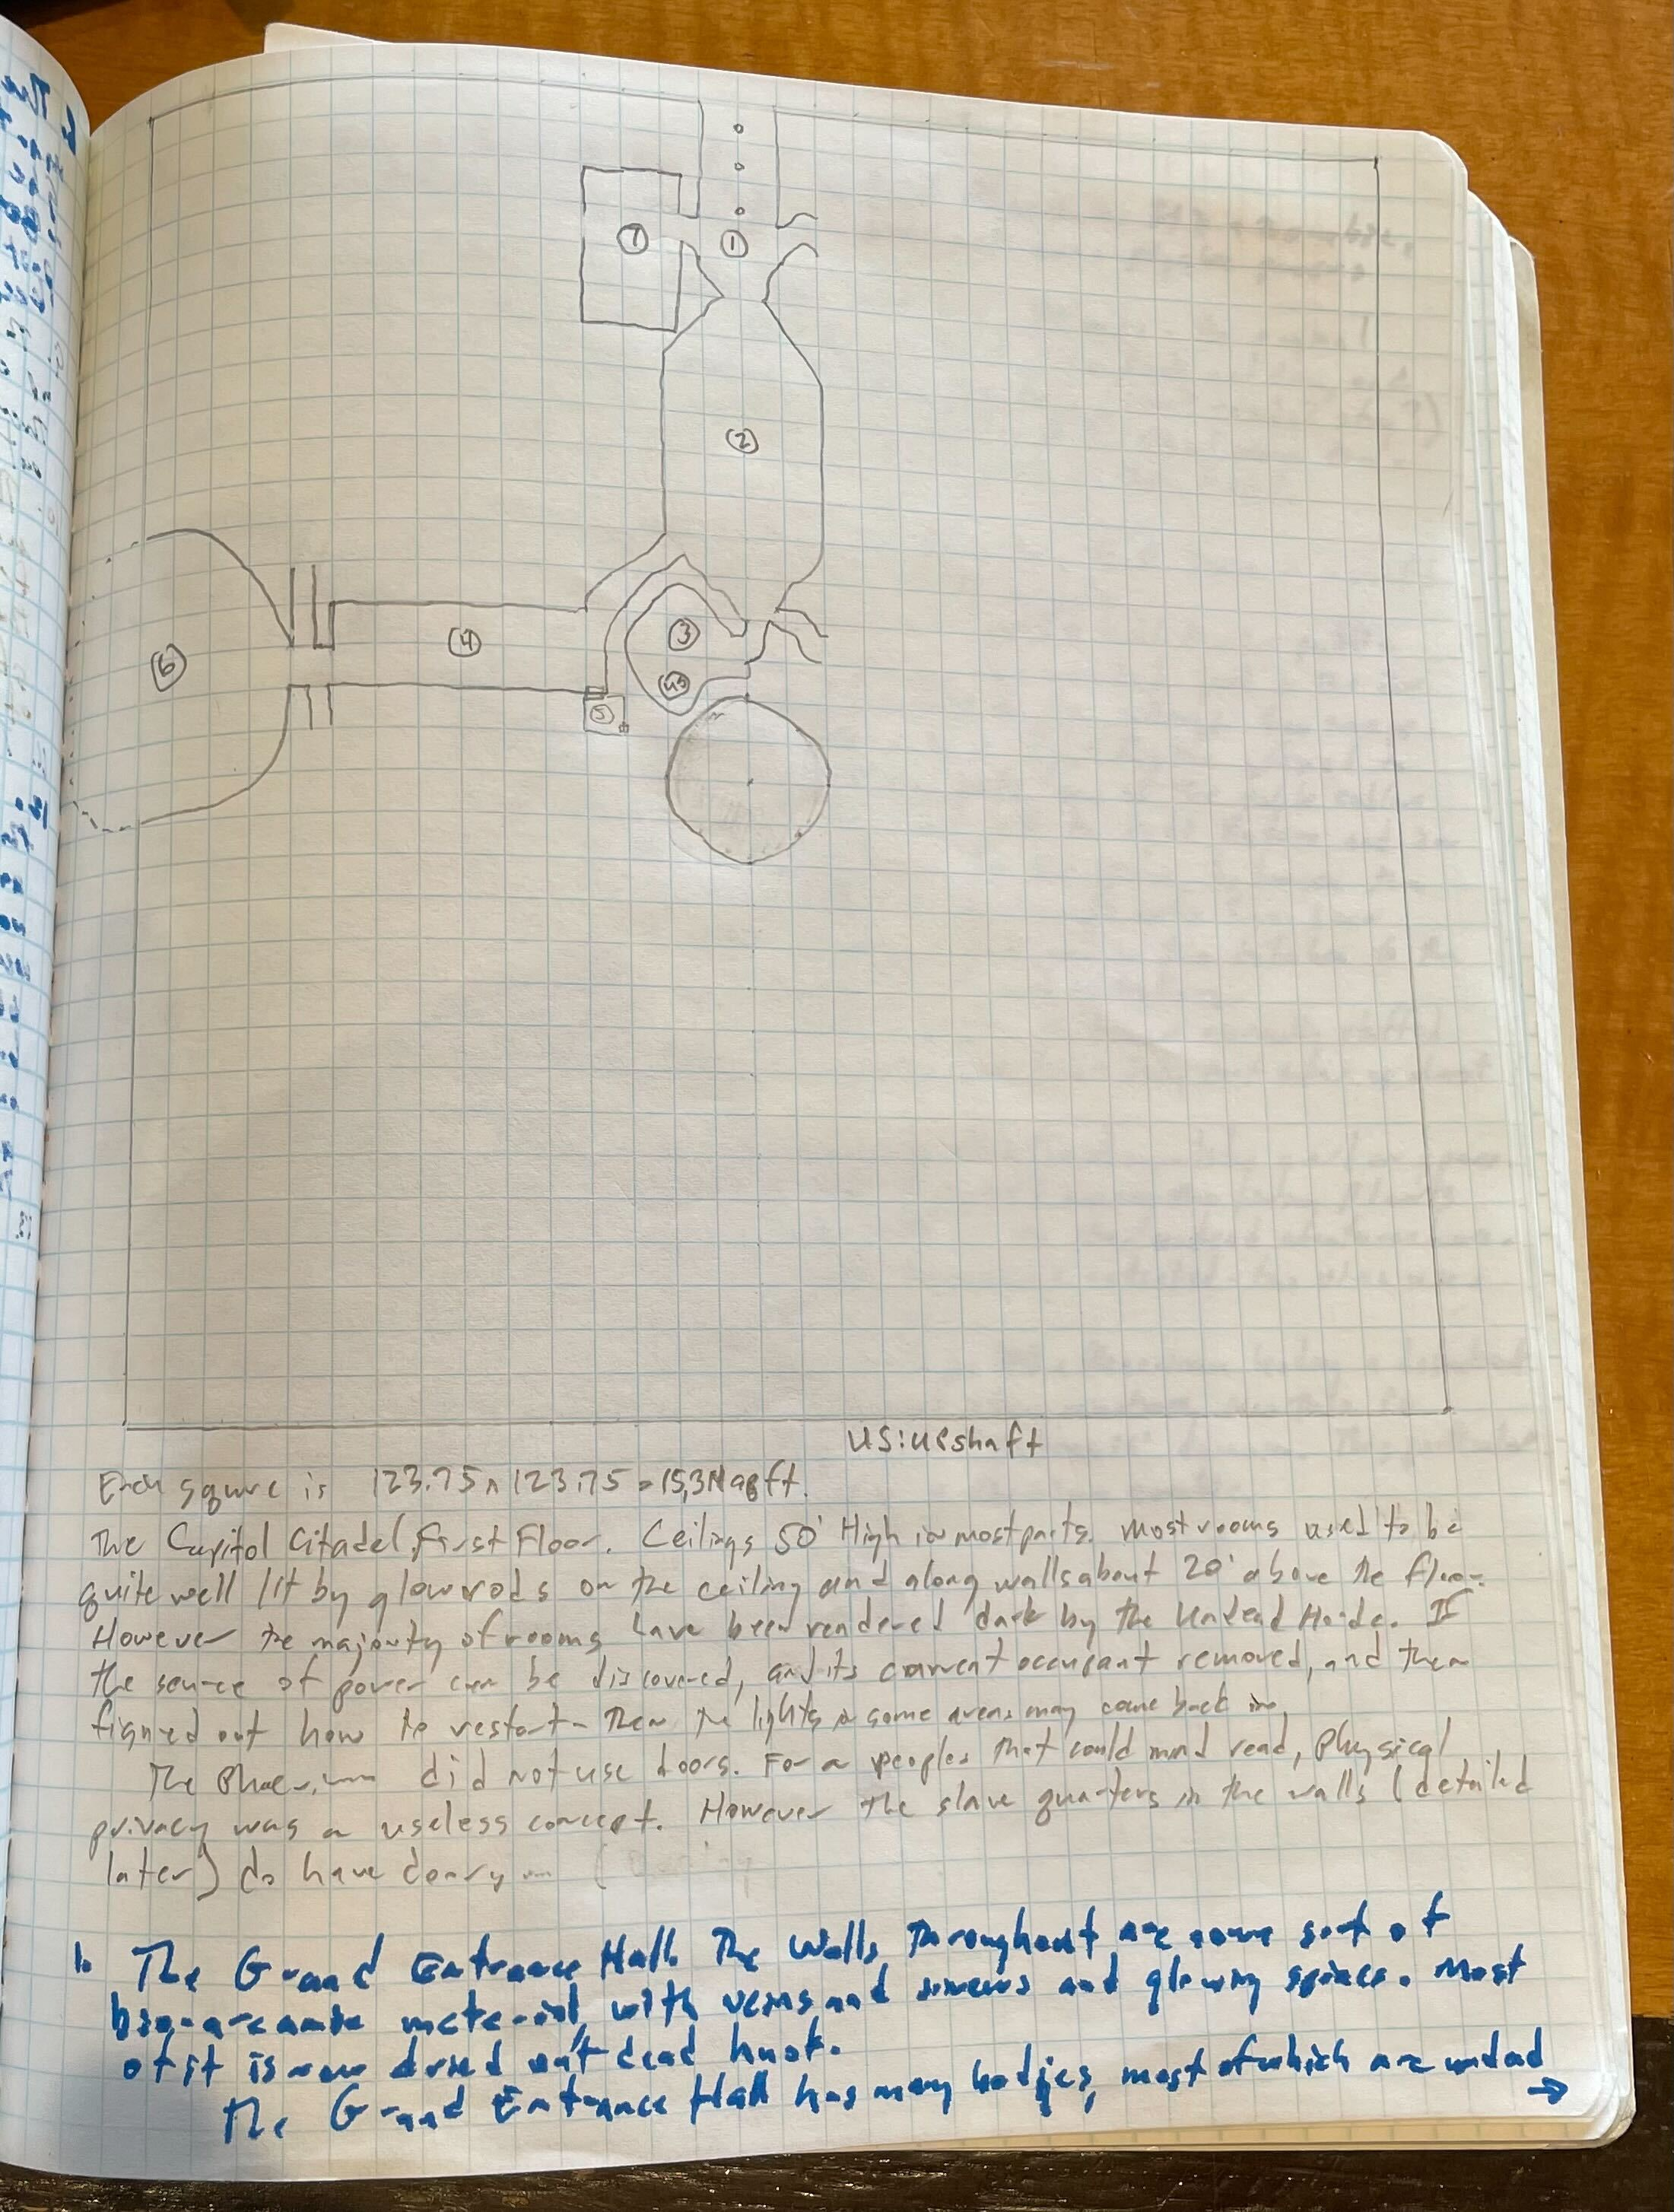 7
1
2
3
4
us
6
5
US: upshaft
Each square is 123.75 x 123.75 = 15,314 sq ft.
The Capitol Citadel, First Floor. Ceilings 50' High in most parts. Most rooms used to be
quite well lit by glowrods on the ceiling and along walls about 20' above the floor.
However the majority of rooms have been rendered dark by the Undead Horde. If
the source of power can be discovered, and its current occupant removed, and then
figured out how to restart - Then the lights in some areas may come back on.
The did not use doors. For a peoples that could mind read, physical
privacy was a useless concept. However the slave quarters in the walls (detailed
later) do have
1. The Grand Entrance Hall. The Walls throughout are some sort of
bio-arcane material, with veins and sinews and glowing spines. Most
of it is now dried out dead husk.
The Grand Entrance Hall has many bodies, most of which are undead
→